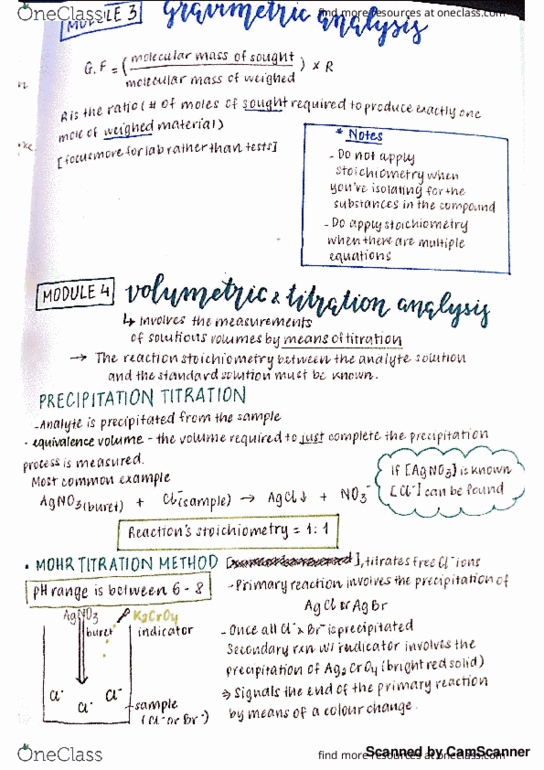 OneClass
find more resources at oneclass.com
MODULE 3 gravimetric analysis
G.F = (molecular mass of sought / molecular mass of weighed) × R
R is the ratio (# of moles of sought required to produce exactly one
mole of weighed material)
[focus more for lab rather than tests]
* Notes
- Do not apply
stoichiometry when
you're isolating for the
substances in the compound
- Do apply stoichiometry
when there are multiple
equations
MODULE 4 volumetric & titration analysis
↳ Involves the measurements
of solutions volumes by means of titration
→ The reaction stoichiometry between the analyte solution
and the standard solution must be known.
PRECIPITATION TITRATION
- Analyte is precipitated from the sample
· equivalence volume - the volume required to just complete the precipitation
process is measured.
Most common example
AgNO₃(buret) + Cl⁻(sample) → AgCl↓ + NO₃⁻
if [AgNO₃] is known
[Cl⁻] can be found
Reaction's stoichiometry = 1:1
· MOHR TITRATION METHOD [ ], titrates free Cl⁻ ions
pH range is between 6 - 8
- Primary reaction involves the precipitation of
AgCl or AgBr
AgNO₃
buret
K₂CrO₄
indicator
Cl⁻
Cl⁻
Cl⁻
sample
(Cl⁻ or Br⁻)
- Once all Cl⁻ & Br⁻ is precipitated
Secondary rxn w/ indicator involves the
precipitation of Ag₂CrO₄ (bright red solid)
⇒ Signals the end of the primary reaction
by means of a colour change.
OneClass
find more resources at oneclass.com
Scanned by CamScanner